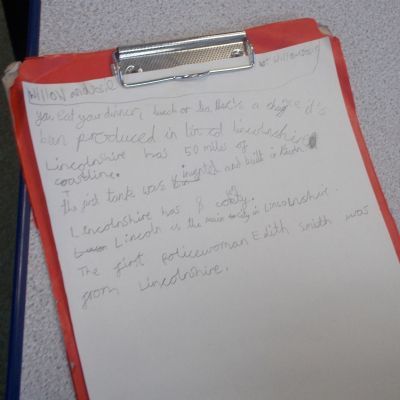 you eat your dinner, lunch or tea that's a
ban produced in Lincolnshire
Lincolnshire has 50 miles of
coastline.
The first tank was invented and built in
Lincolnshire has 8
Lincoln is the main in Lincolnshire.
The first Policewoman Edith Smith was
from Lincolnshire.